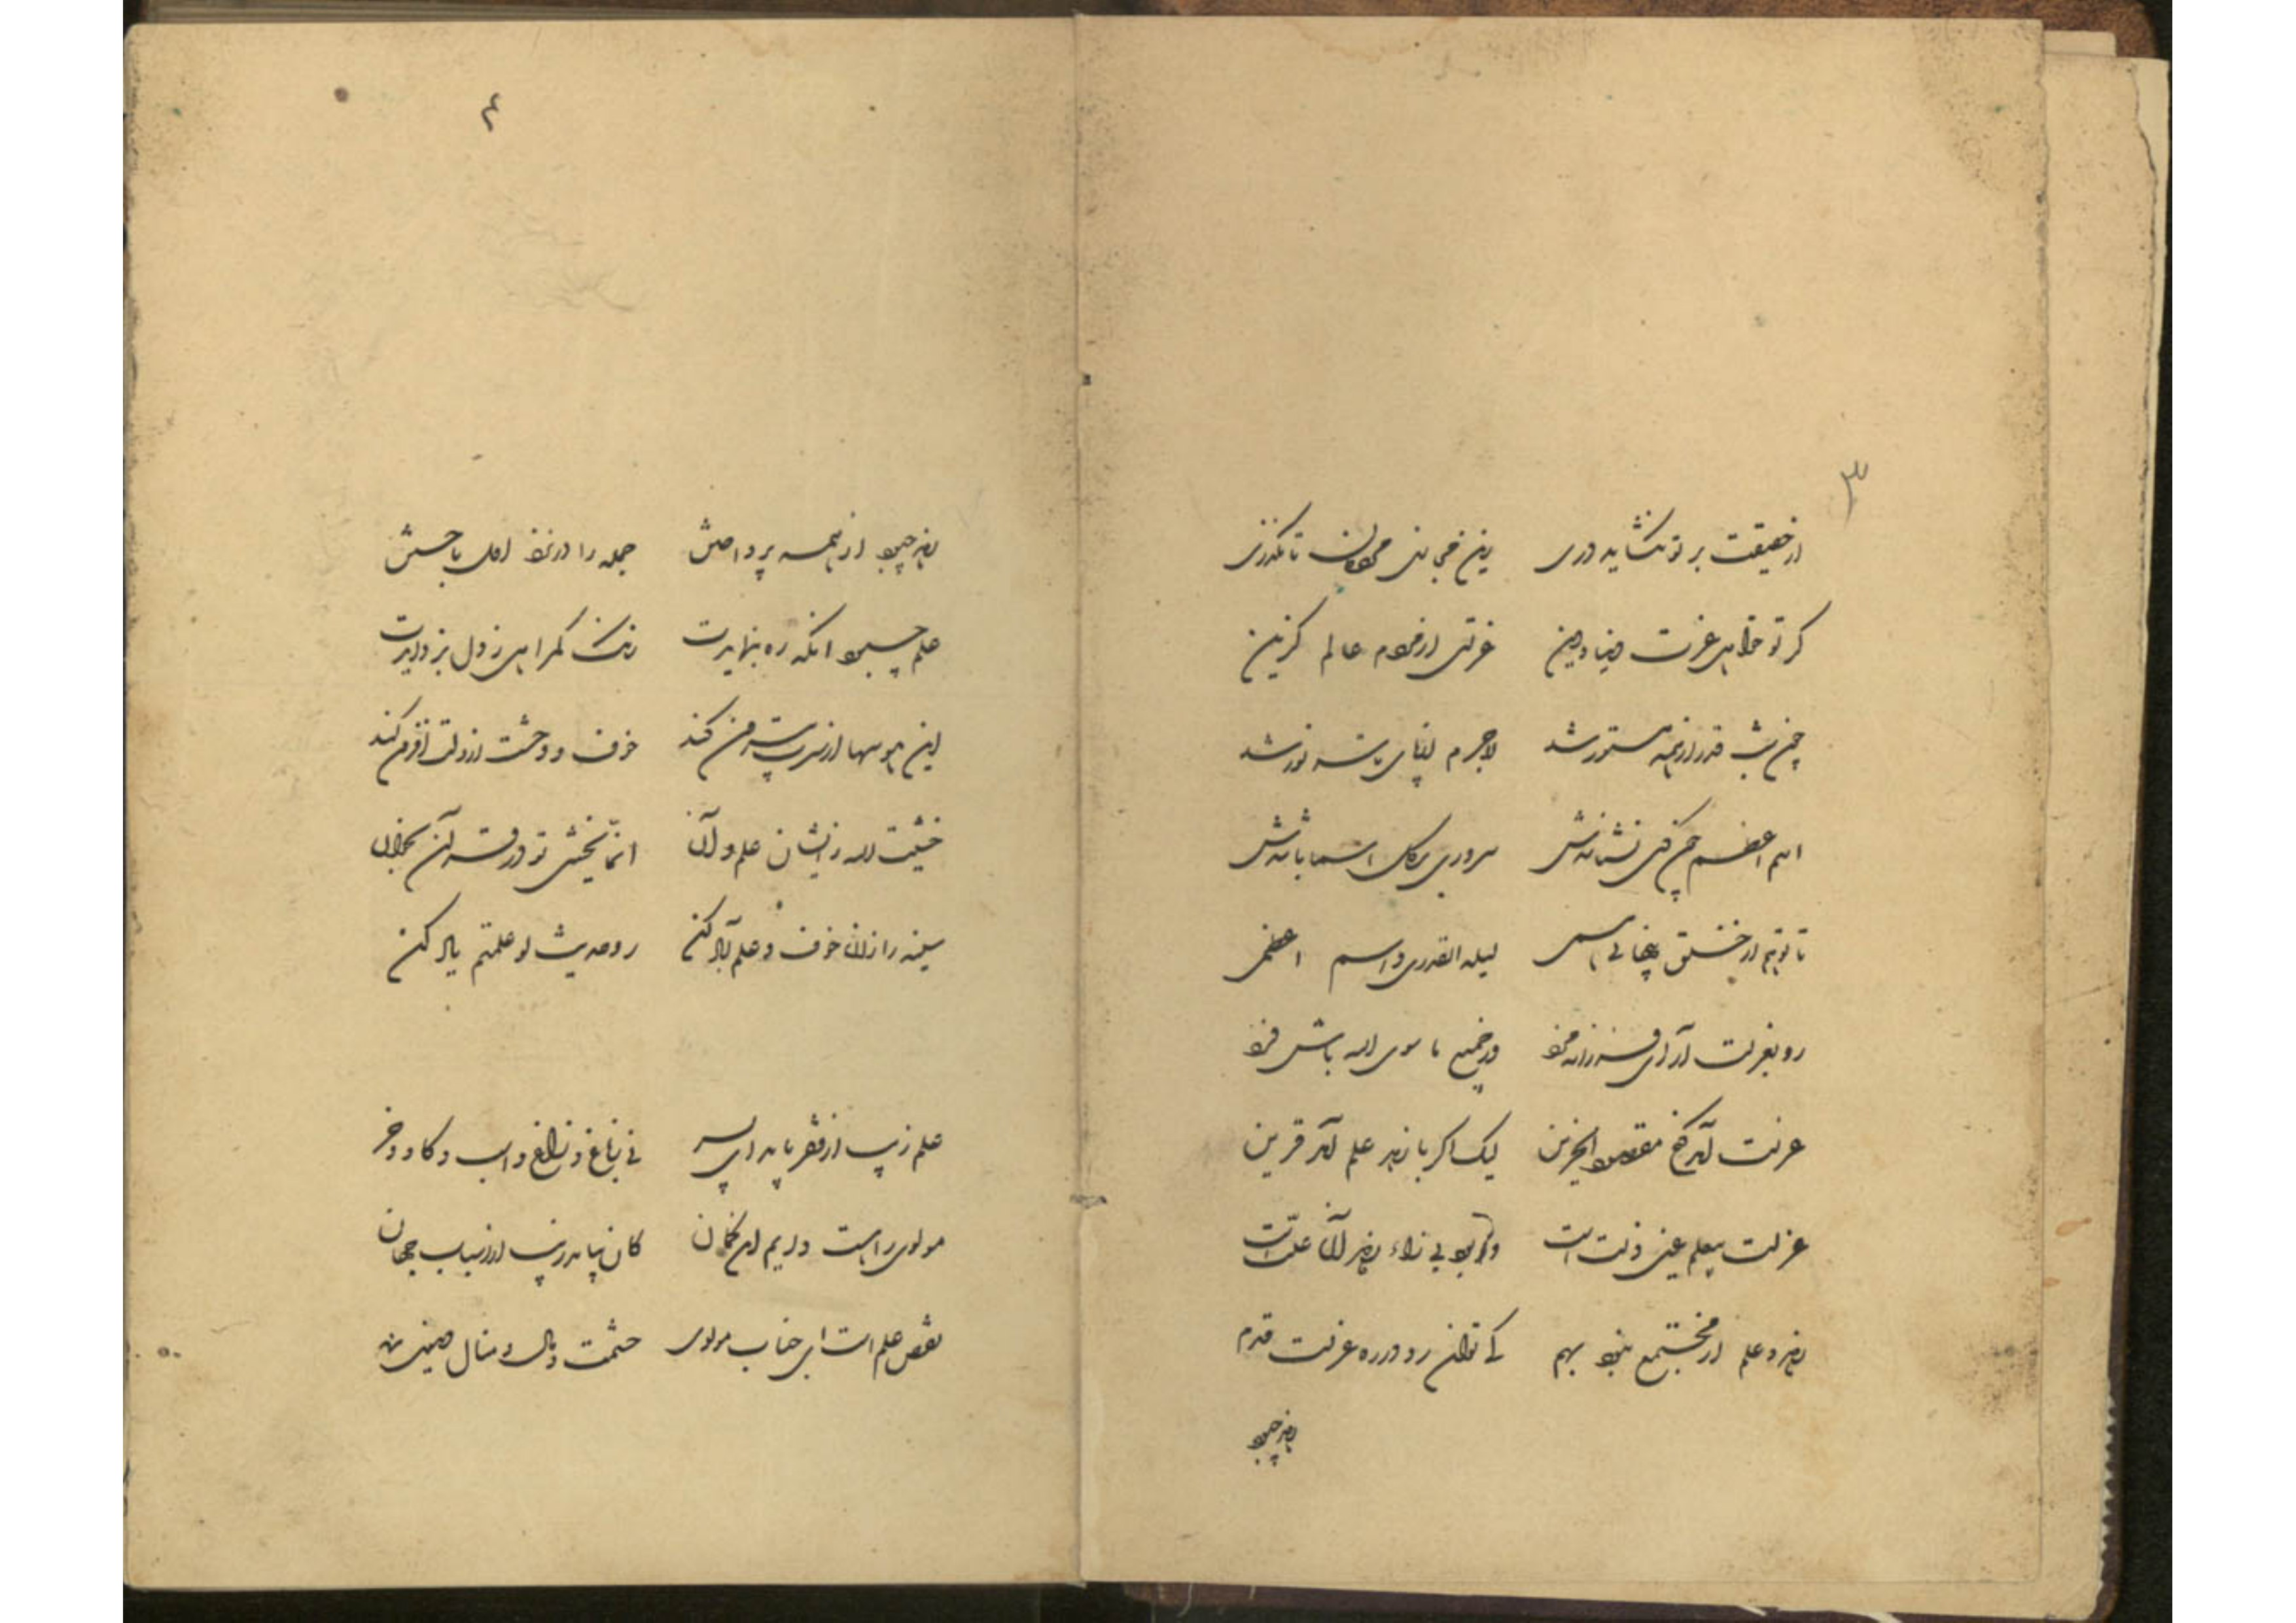 ۳
از حقیقت بر تو نگشاید دری زین مجازی مردمان تا نگذری
گر تو خواهی عزت دنیا و دین عزلتی از مردم عالم گزین
چون شب قدر از همه مستور شد لاجرم از پای تا سر نور شد
اسم اعظم چونکه کس نشناسدش سروری بر کل اسما باشدش
تا تو نیز از خلق پنهانی همی لیلة القدری و اسم اعظمی
رو بعزلت آر ای فرزانه مرد وز جمیع ما سوی الله باش فرد
عزلت آمد گنج مقصود ای حزین لیک اگر با زهد و علم آمد قرین
عزلت بیعلم عین زلت است ور بود بی زاء زهد آن علت است
زهد و علم ار مجتمع نبود بهم کی توان زد در ره عزلت قدم
زهد چبود
۴
زهد چبود از همه پرداختن جمله را در داو اول باختن
علم چبود آنکه ره بنمایدت زنگ گمراهی ز دل بزدایدت
این هوسها از سرت بیرون کند خوف و خشیت در دلت افزون کند
خشیت الله را نشان علم دان انما یخشی تو در قرآن بخوان
سینه را از علم حق آباد کن رو حدیث لو علمتم یاد کن
علم زیب از فقر یابد ای پسر نی ز باغ و راغ و اسب و گاو و خر
مولوی را هست دایم این گمان کان بیابد زیب ز اسباب جهان
نقص علم است ای جناب مولوی حشمت و مال و منال دنیوی